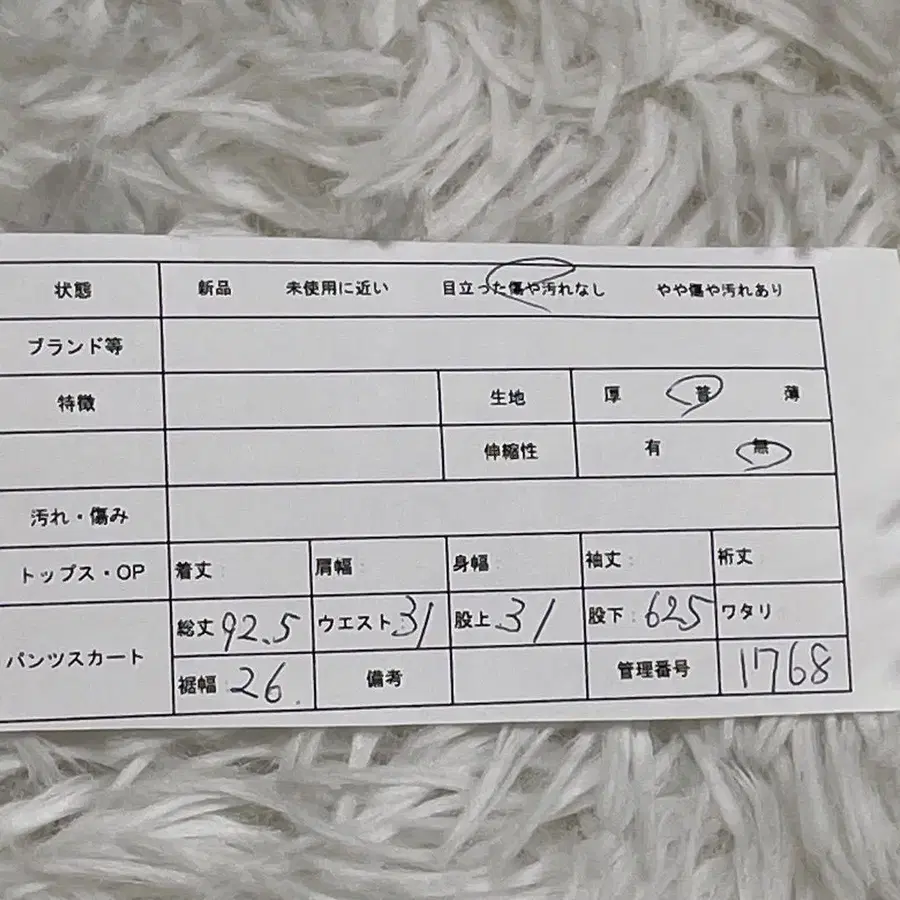 状態 新品 未使用に近い 目立った傷や汚れなし やや傷や汚れあり
ブランド等
特徴 生地 厚 普 薄
伸縮性 有 無
汚れ・傷み
トップス・OP 着丈: 肩幅: 身幅: 袖丈: 裄丈
パンツスカート 総丈 92.5 ウエスト:31 股上:31 股下:625 ワタリ
裾幅:26. 備考 管理番号 1768